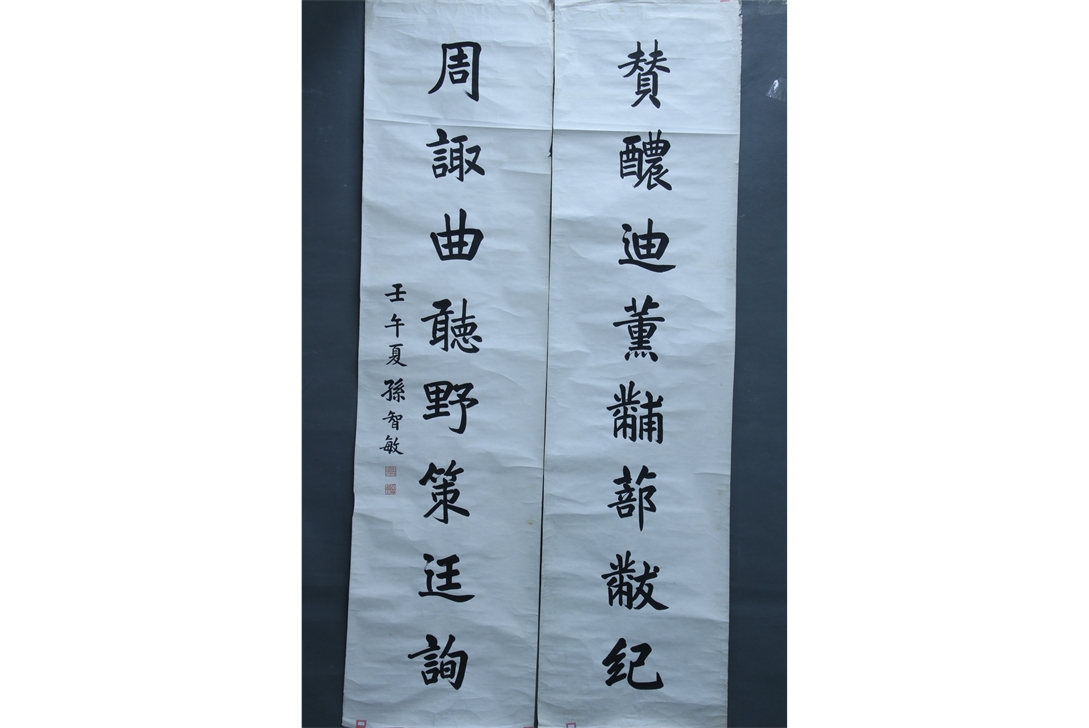 賛醲迪薰黼蔀黻纪
周諏曲聽野策廷詢
壬午夏孫智敏